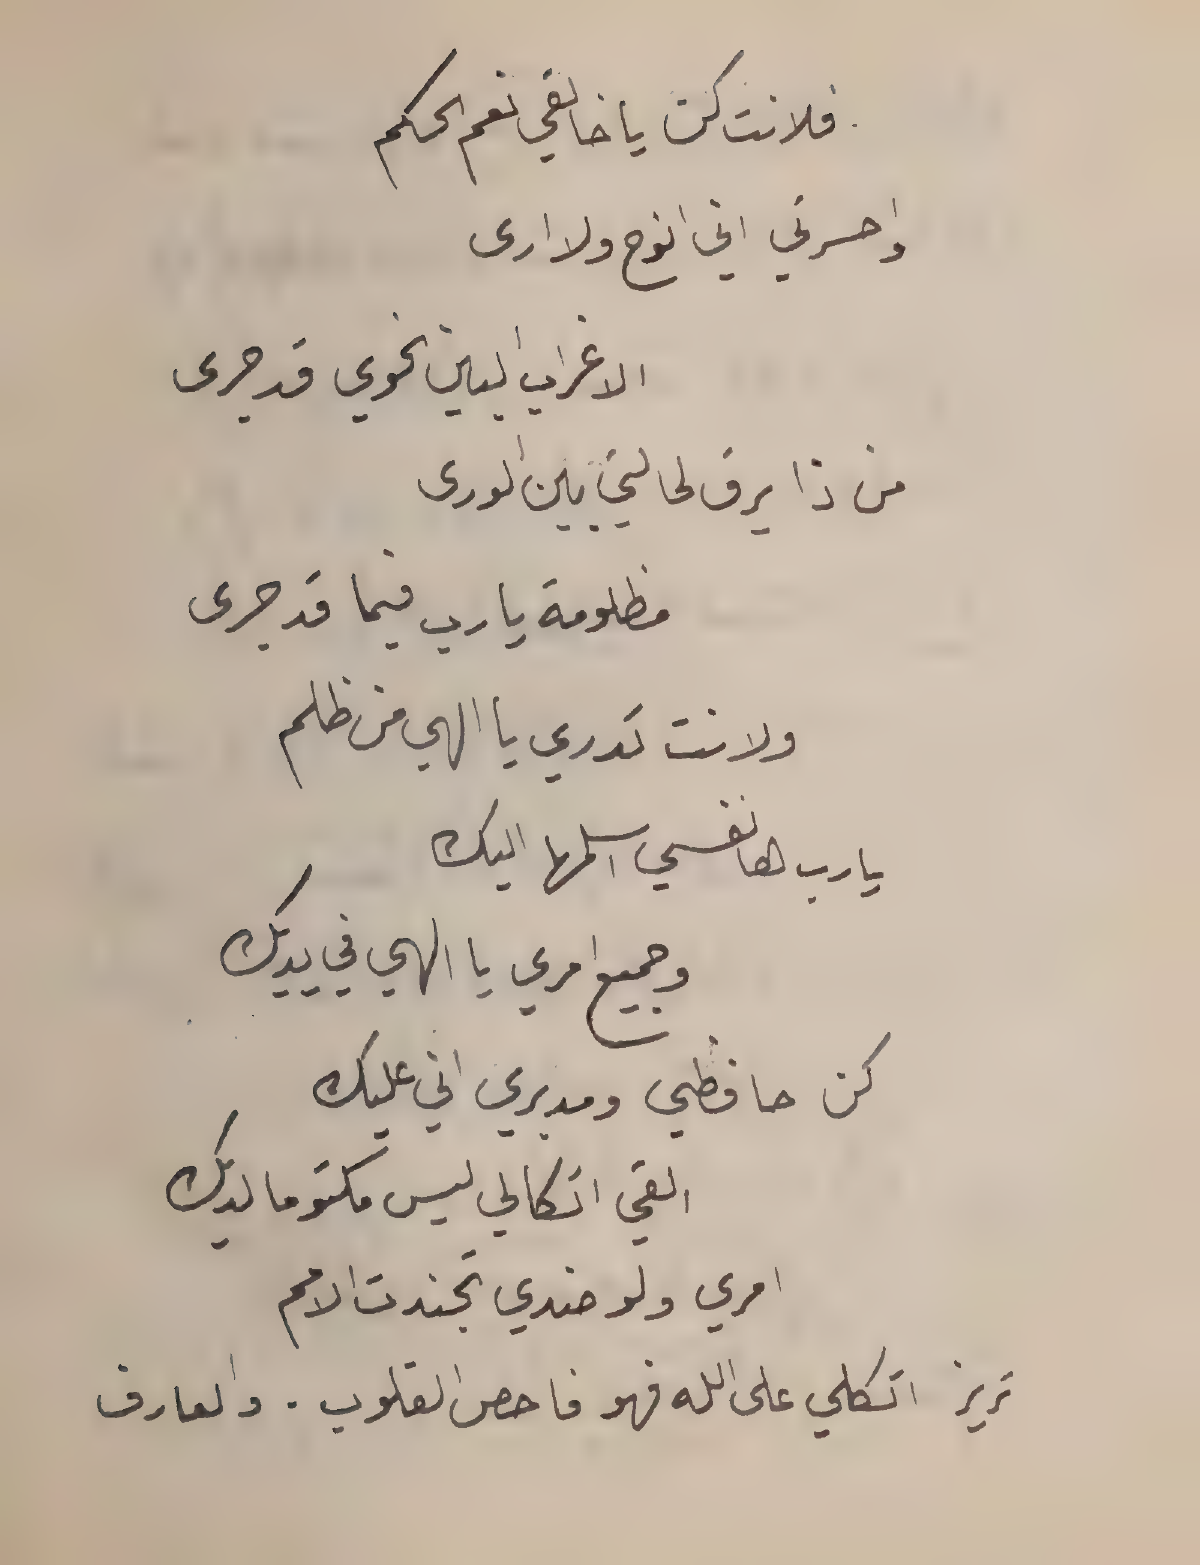 . فلانت كن يا خالقي نعم الحكم
واحسرتي اني انوح ولا ارى
الا غراب البين نحوي قد جرى
من ذا يرق لحالتي بين الورى
مظلومة يارب فيما قد جرى
ولانت تدري يا الهي من ظلم
يارب ها نفسي اسلمها اليك
وجميع امري يا الهي في يديك
كن حافظي ومدبري اني عليك
القي اتكالي ليس مكتوما لديك
امري ولو ضدي تجندت الامم
تريز اتكلي على الله فهو فاحص القلوب . والعارف